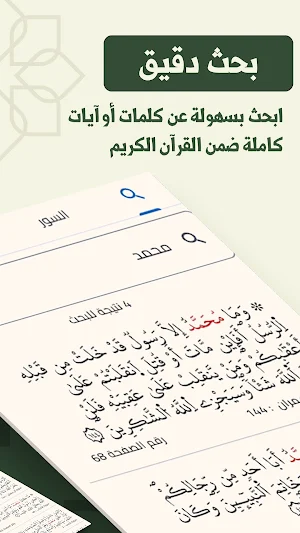 بحث دقيق
ابحث بسهولة عن كلمات أو آيات
كاملة ضمن القرآن الكريم
السور
محمد
4 نتيجة للبحث
وَمَا مُحَمَّدٌ إِلَّا رَسُولٌ قَدْ خَلَتْ مِن قَبْلِهِ
الرُّسُلُ أَفَإِيْن مَّاتَ أَوْ قُتِلَ انقَلَبْتُمْ عَلَىٰ
أَعْقَٰبِكُمْ وَمَن يَنقَلِبْ عَلَىٰ عَقِبَيْهِ فَلَن
اللَّهَ شَيْئًا وَسَيَجْزِي اللَّهُ الشَّٰكِرِينَ
144
رقم الصفحة 68
أَبَا أَحَدٍ مِّن رِّجَالِكُمْ
خَاتَمَ النَّبِيِّينَ وَكَانَ